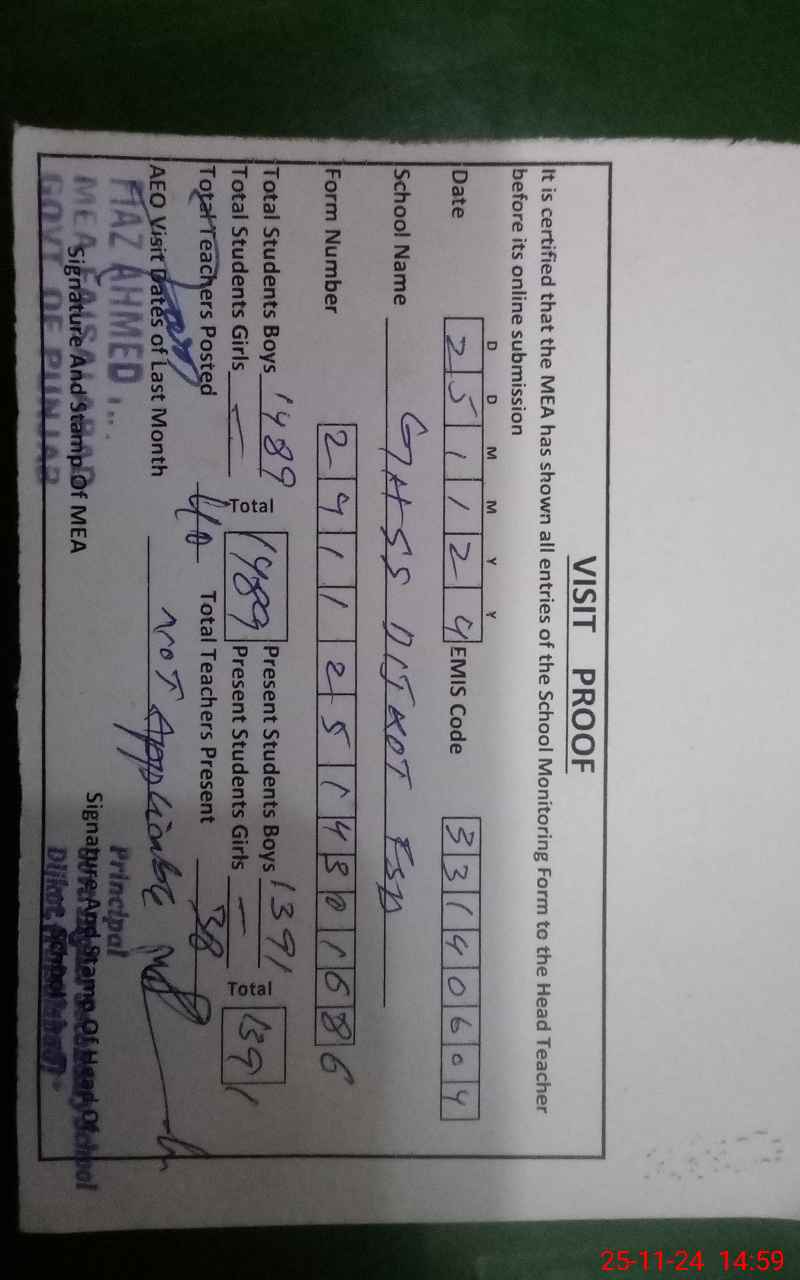 VISIT PROOF
It is certified that the MEA has shown all entries of the School Monitoring Form to the Head Teacher
before its online submission
D D M M Y Y
Date 2 5 1 1 2 4 EMIS Code 3 3 1 4 0 6 0 4
School Name GHSS DIJKOT FSD
Form Number 2 4 1 1 2 5 1 4 3 0 1 6 8 6
Total Students Boys 1489 Total 1489 Present Students Boys 1391 Total 1391
Total Students Girls — Present Students Girls —
Total Teachers Posted 40 Total Teachers Present 38
AEO Visit Dates of Last Month not Applicable
FIAZ AHMED
MEA FAISALABAD
GOVT OF PUNJAB
Signature And Stamp Of MEA
Principal
Signature And Stamp Of Head Of School
Dijkot
25-11-24 14:59